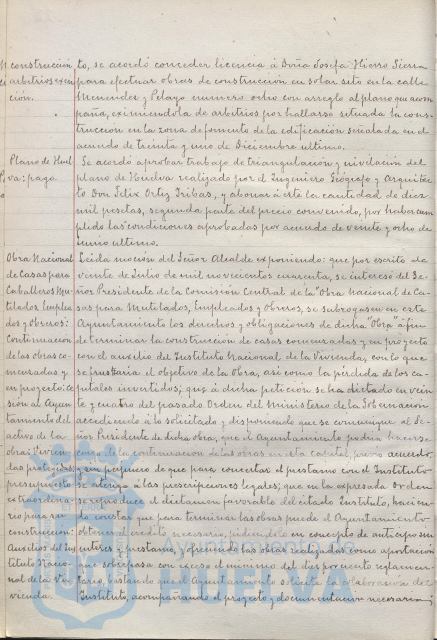 construcción
arbitrios exen
ción.
to, se acordó conceder licencia á Doña Josefa Hierro Sierra
para efectuar obras de construcción en solar sito en la calle
Menendez y Pelayo numero ocho con arreglo al plano que acom
paña, eximiendola de arbitrios por hallarse situada la cons-
truccion en la zona de fomento de la edificación señalada en el
acuerdo de treinta y uno de Diciembre ultimo.
Plano de Huel
va: pago
Se acordó aprobar trabajo de triangulación y nivelación del
plano de Huelva realizado por el Ingeniero Geógrafo y Arquitec
to Don Felix Ortiz Iribas, y abonar á este la cantidad de diez
mil pesetas, segunda parte del precio convenido, por haber cum
plido las condiciones aprobadas por acuerdo de veinte y ocho de
Junio ultimo.
Obra Nacional
de Casas para
Caballeros Mu-
tilados, Emplea
dos y Obreros:
Continuacion
de las obras co-
menzadas y
en proyecto: Ce
sión al Ayun
tamiento del
activo de la
obra: Vivien
das protegidas
presupuesto
extraordina-
rio para su
construcción:
Auxilios del Ins
tituto Nacio-
nal de la Vi-
vienda.
Leida moción del Señor Alcalde exponiendo: que por escrito de
veinte de Julio de mil novecientos cuarenta, se intereso del Se-
ñor Presidente de la Comisión Central de la "Obra Nacional de Ca-
sas para Mutilados, Empleados y Obreros, se subrogase en este
Ayuntamiento los derechos y obligaciones de dicha "Obra" á fin
de terminar la construcción de casas comenzadas y en proyecto
con el auxilio del Instituto Nacional de la Vivienda, con lo que
se frustaria el objetivo de la Obra, así como la pérdida de los ca-
pitales invertidos; que á dicha petición se ha dictado en vein
te y cuatro del pasado Orden del Ministerio de la Gobernación
accediendo á lo solicitado y disponiendo que se comunique al Se-
ñor Presidente de dicha obra, que el Ayuntamiento podria hacerse
cargo de la continuacion de las obras en esta capital, previo acuerdo,
y sin perjuicio de que para concertar el prestamo con el Instituto
se atenga á las prescripciones legales; que en la expresada Orden
se reproduce el dictamen favorable del citado Instituto, hacien-
do constar que para terminar las obras puede el Ayuntamiento
obtener el credito necesario, pidiendo en concepto de anticipo sin
interes y prestamo, y ofreciendo las obras realizadas como aportación
que sobrepasa con exceso el minimo del diez por ciento reglamen-
tario, bastando que el Ayuntamiento solicite la colaboración del
Instituto, acompañando el proyecto y documentacion necesaria;